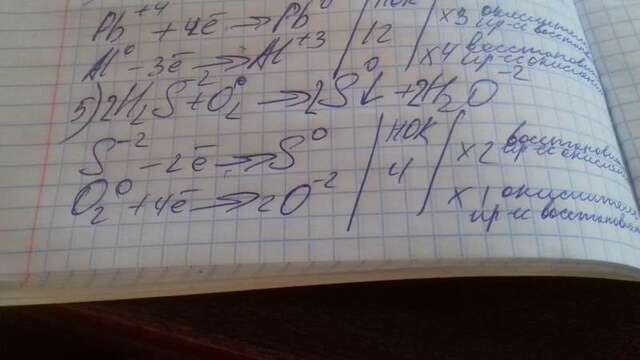 Pb⁺⁴ + 4ē → Pb⁰ | НОК 12 | x3 окислитель пр-с восстан
Al⁰ - 3ē → Al⁺³ | x4 восстанови пр-с окислен
5) 2H₂S⁻² + O₂⁰ → 2S⁰↓ + 2H₂O⁻²
S⁻² - 2ē → S⁰ | НОК 4 | x2 восстанови пр-с окислен
O₂⁰ + 4ē → 2O⁻² | x1 окислитель пр-с восстан